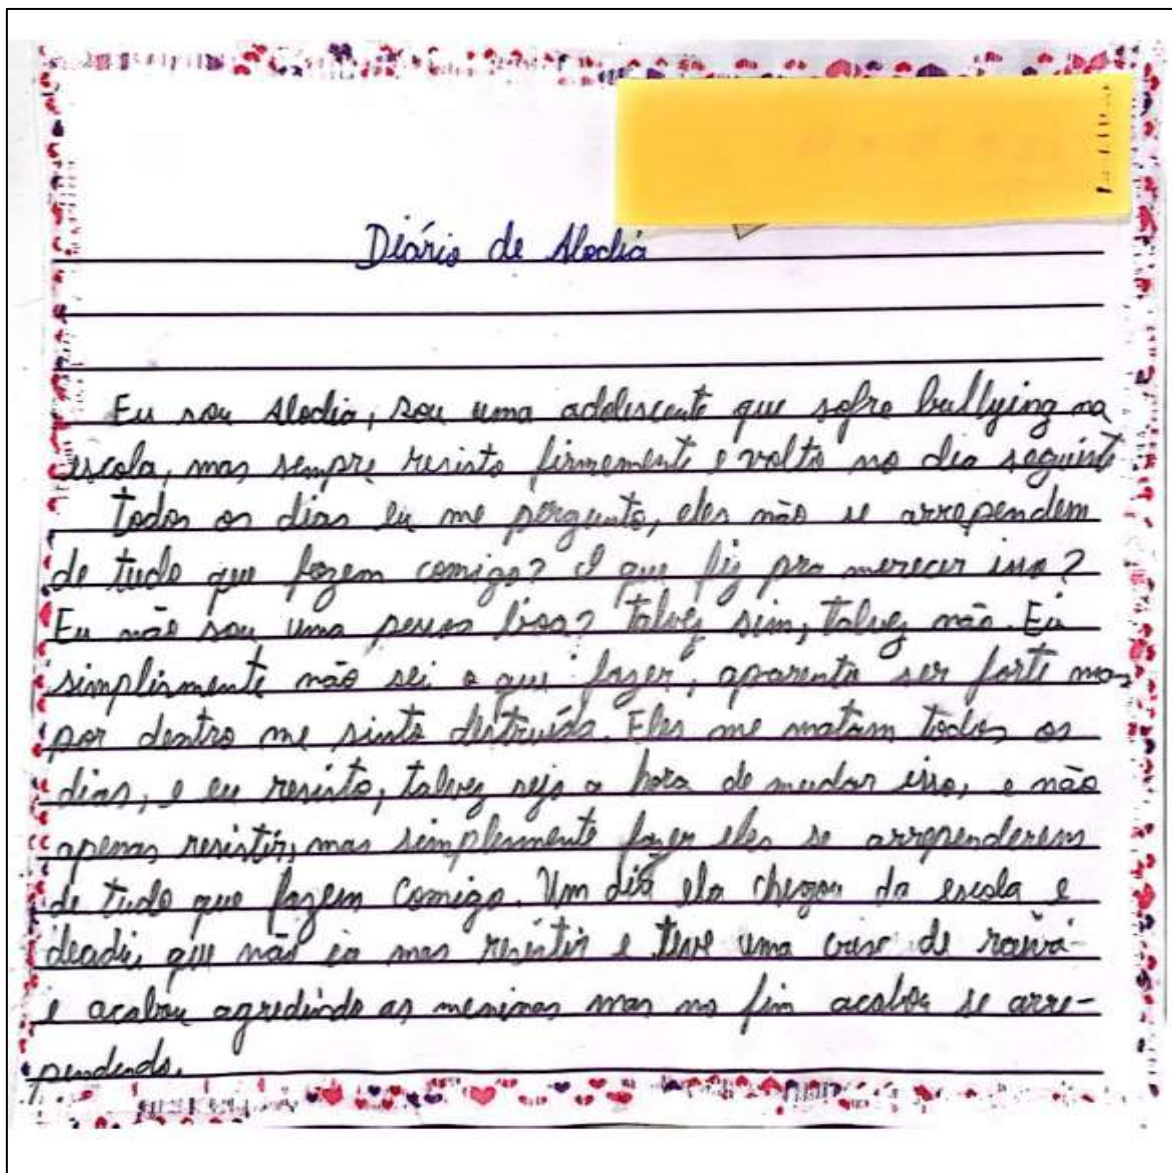 Diário de Alodia
Eu sou Alodia, sou uma adolescente que sofre bullying na
escola, mas sempre resisto firmemente e volto no dia seguinte
Todos os dias eu me pergunto, eles não se arrependem
de tudo que fazem comigo? O que fiz pra merecer isso?
Eu não sou uma pessoa boa? Talvez sim, talvez não. Eu
simplismente não sei o que fazer, aparento ser forte mas
por dentro me sinto destruída. Eles me matam todos os
dias, e eu resisto, talvez seja a hora de mudar isso, e não
apenas resistir, mas simplesmente fazer eles se arrependerem
de tudo que fazem comigo. Um dia ela chegou da escola e
que não ia mas resistir e teve uma crise de raiva
e acabou agredindo as meninas mas no fim acabou se arre-
pendendo.